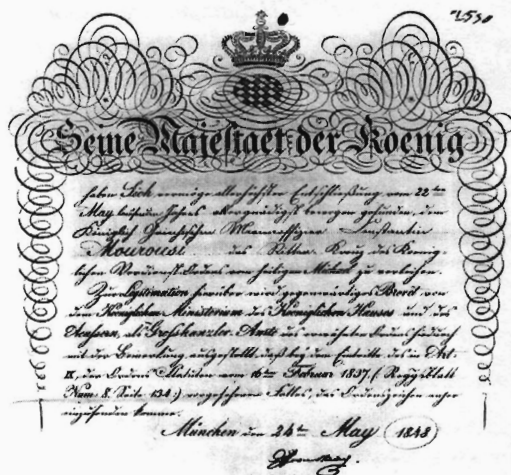 Seine Majestaet der Koenig
haben Sich vermöge allerhöchster Entschließung vom 22ten
May laufenden Jahres allergnädigst bewogen gefunden, dem
Königlich Griechischen Marineoffizier Constantin
Mourousi das Ritter Kreuz des Koenig-
lichen Verdienst Ordens vom heiligen Michael zu verleihen.
Zur Legitimation hierüber wird gegenwärtiges Brevet von
dem Koeniglichen Ministerium des Koeniglichen Hauses und des
Aeussern, als Großkanzler-Amte des Ordens
mit der Bemerkung ausgestellt, daß bey dem Eintritte des in Art.
IX, der Ordens Statuten vom 16ten Februar 1837. (Reggsblatt
Num: 8. Seite 134.) vorgesehenen Falles, das Ordenszeichen anher
einzusenden komme.
München den 24ten May 1848